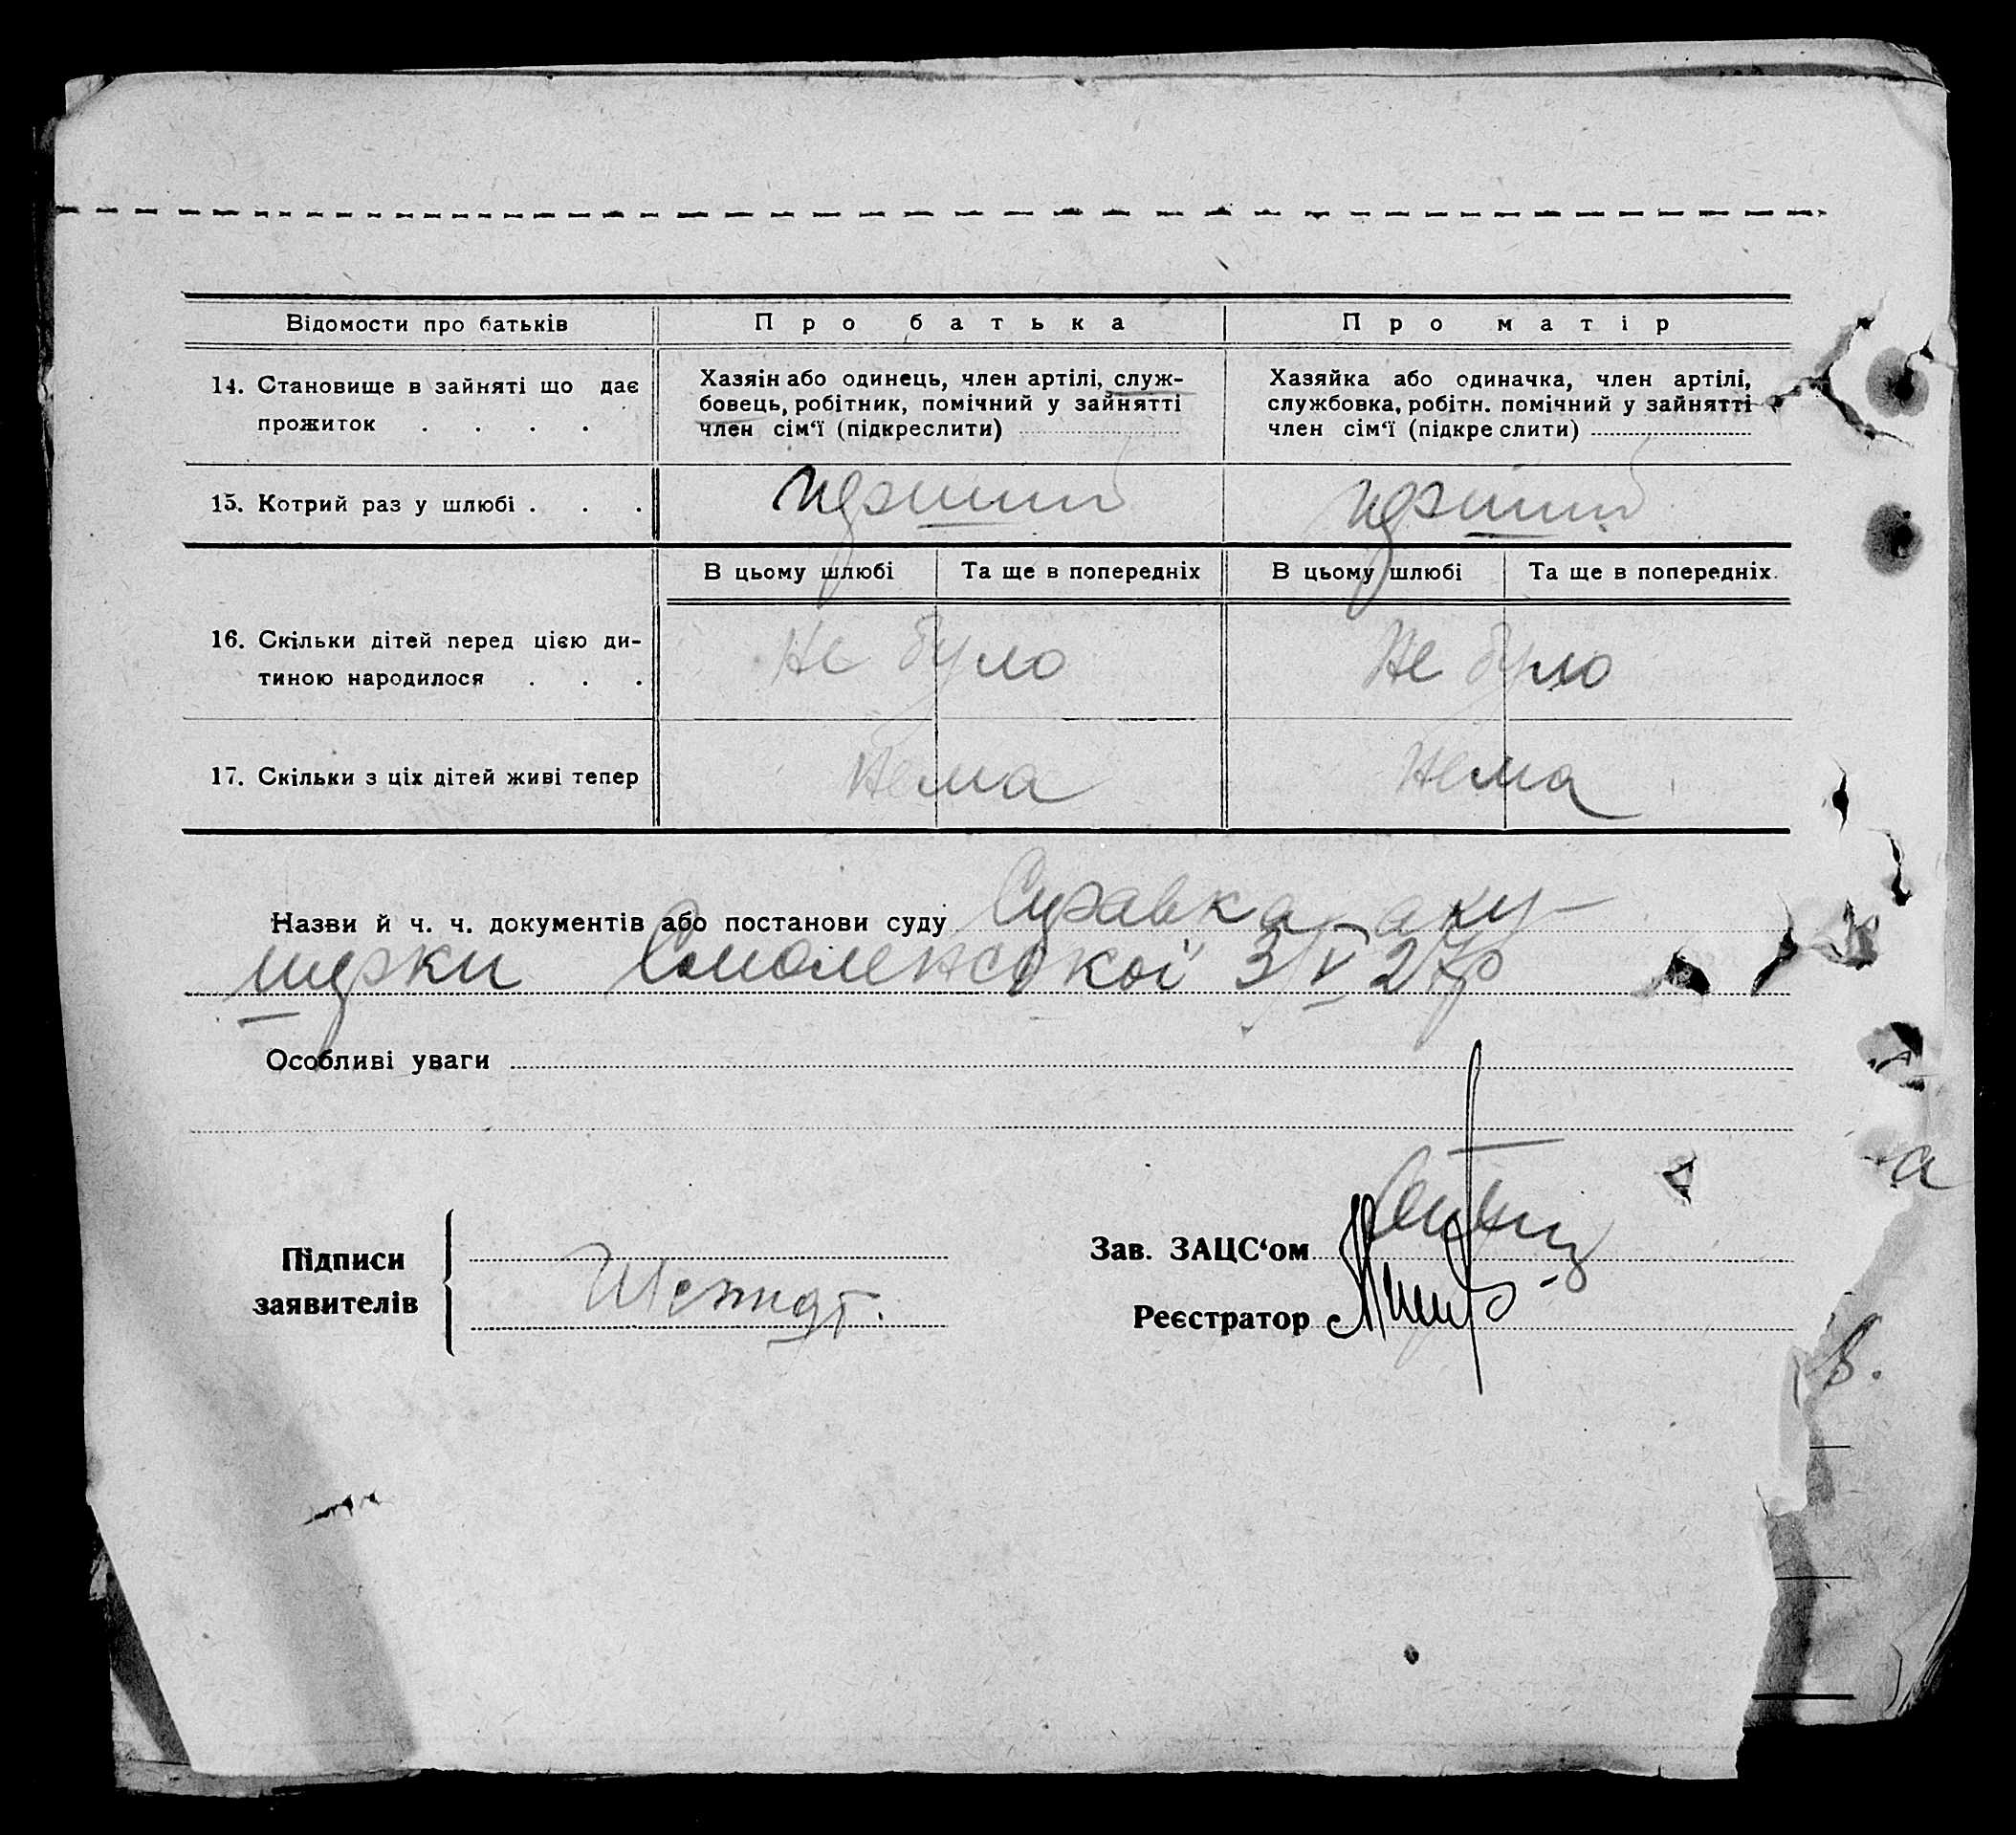 Відомости про батьків Про батька Про матір
14. Становище в зайняті що дає Хазяін або одинець, член артілі, служ- Хазяйка або одиначка, член артілі,
прожиток . . . . бовець, робітник, помічний у зайнятті службовка, робітн. помічний у зайнятті
член сім‘ї (підкреслити) член сім‘ї (підкреслити)
15. Котрий раз у шлюбі . . . перший перший
В цьому шлюбі Та ще в попередніх В цьому шлюбі Та ще в попередніх.
16. Скільки дітей перед цією ди- Не було Не було
тиною народилося . . .
17. Скільки з ціх дітей живі тепер Нема Нема
Назви й ч. ч. документів або постанови суду Справка аку-
шерки Смоленської 3/V 27р
Особливі уваги
Підписи
заявителів
Зав. ЗАЦС‘ом
Реєстратор
а
в.